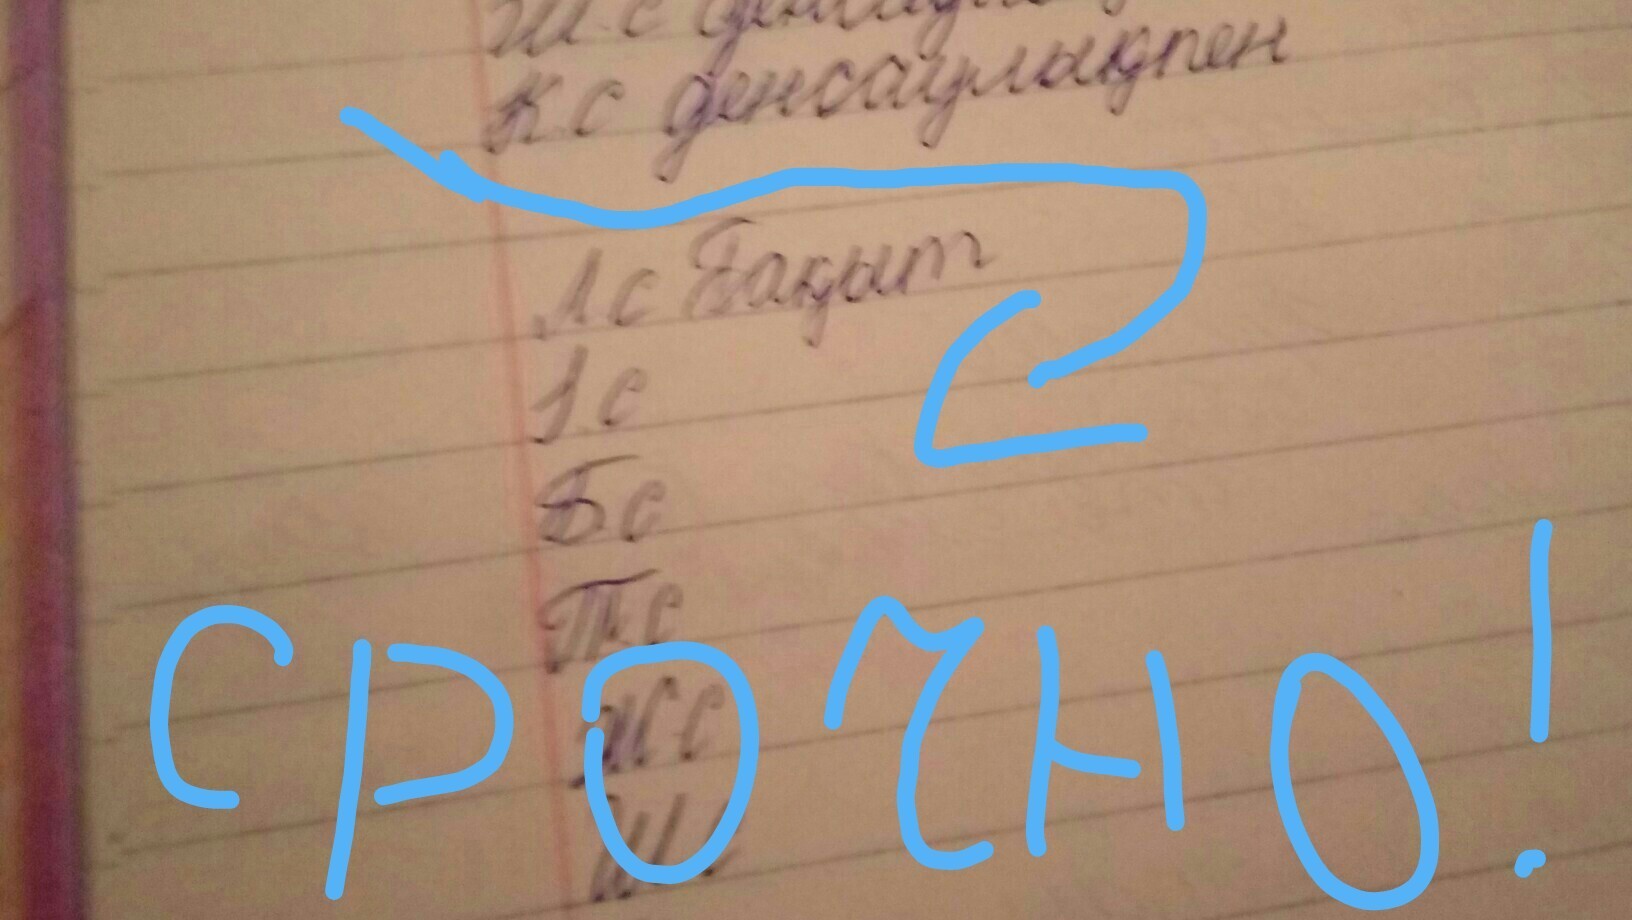 Ш.с
К.с денсаулықпен
А с Бақыт
І с
Б с
Т.с
Ж с
Ш
СРОЧНО!